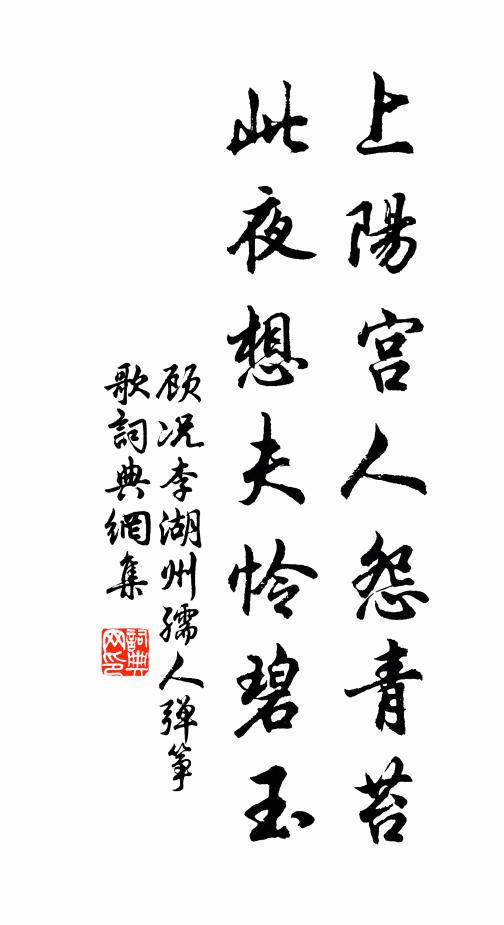 上陽宮人怨青苔
此夜想夫怜碧玉
顾况李湖州孺人弹筝
歌詞典網集
詞典網印